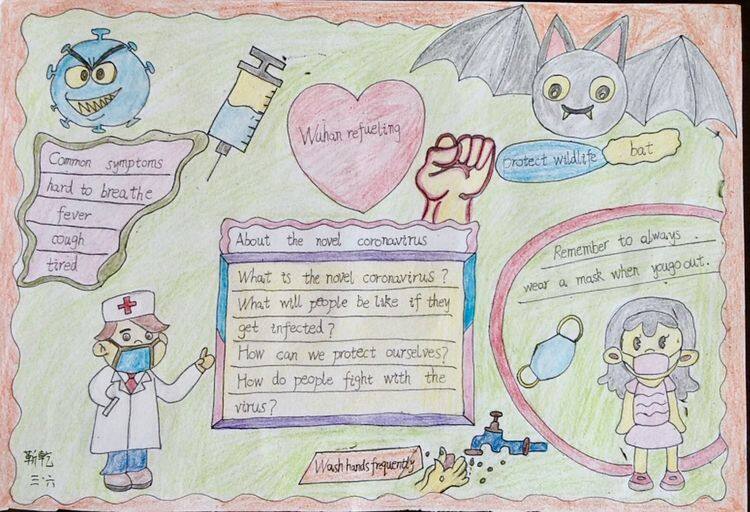 Wuhan refueling
protect wildlife
bat
Common symptoms
hard to breathe
fever
cough
tired
About the novel coronavirus
What is the novel coronavirus?
What will people be like if they
get infected?
How can we protect ourselves?
How do people fight with the
virus?
Remember to always
wear a mask when yougo out.
Wash hands frequently
三.六